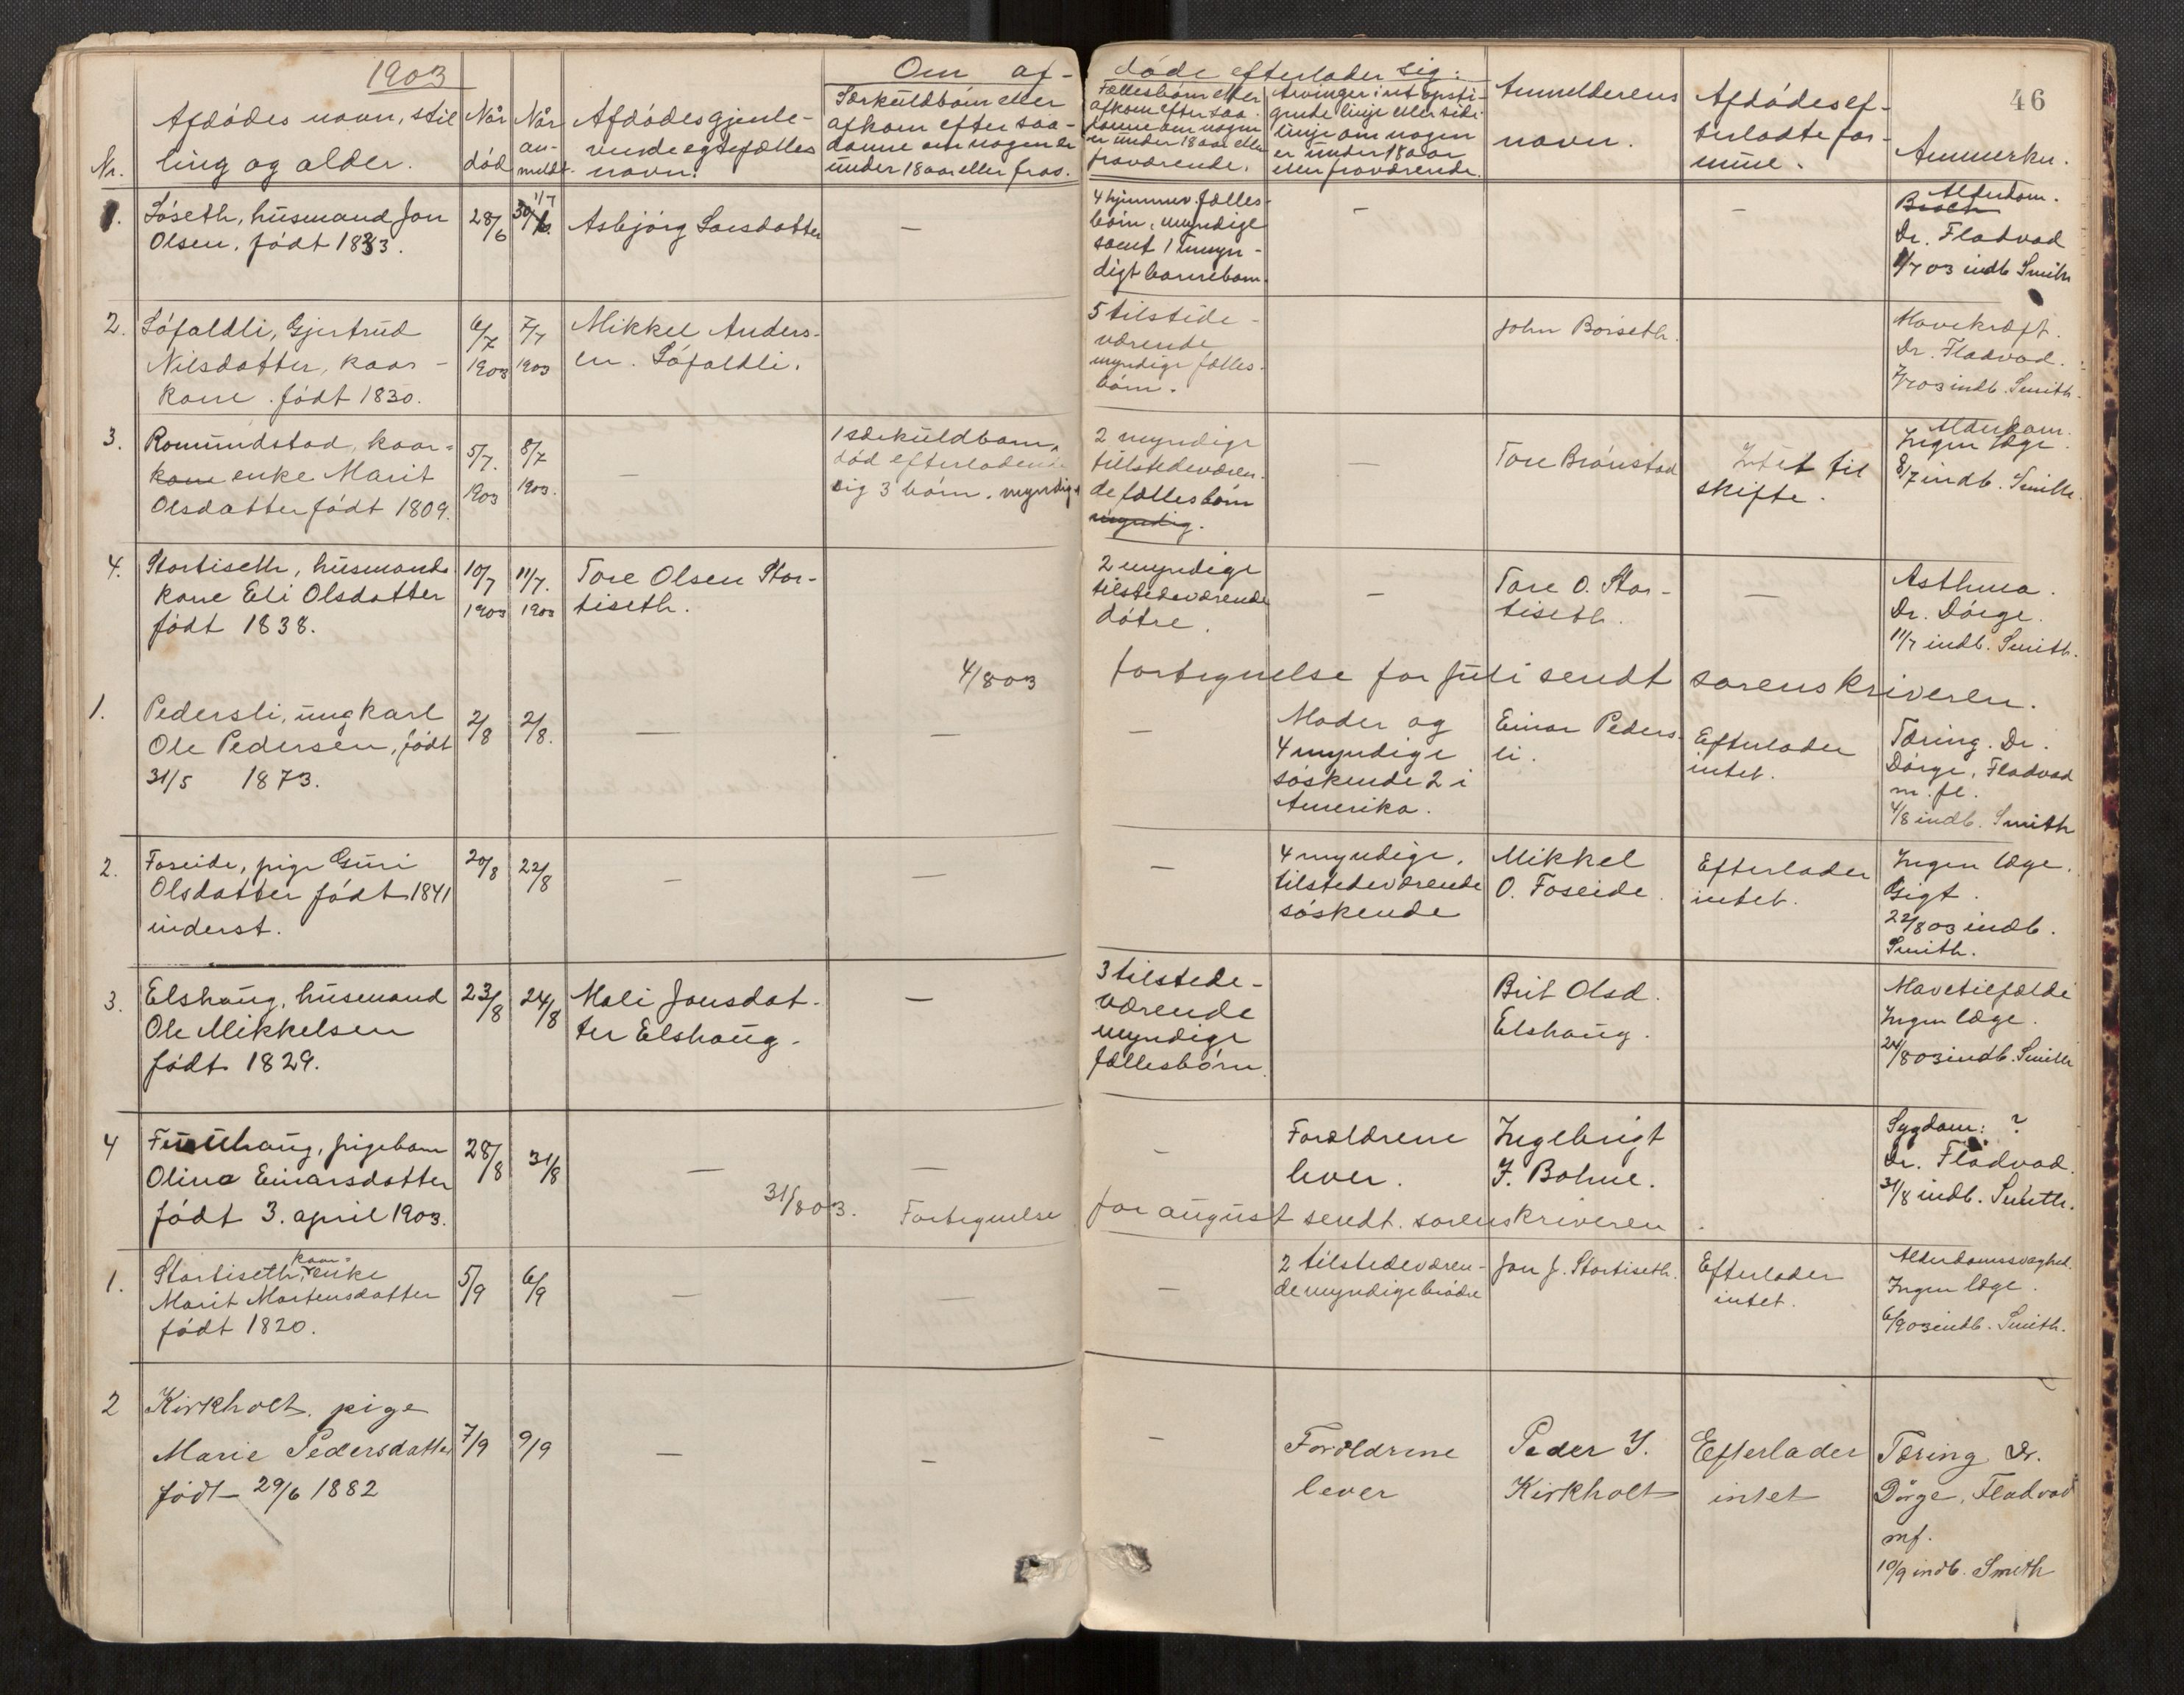 1903
Om af-
døde efterlader sig:
46
Nr.
Afdødes navn, stil
ling og alder.
Når
død
Når
an-
meldt.
Afdødes gjenle-
vende egtefælles
navn.
Særkuldbørn eller
afkom efter saa-
danne om nogen er
under 18 aar eller frav.
Fællesbørn eller
afkom efter saa-
danne om nogen
er under 18 aar eller
fraværende.
Arvinger i ret opsti-
gende linje eller side-
linje om nogen
er under 18 aar
eller fraværende.
Anmelderens
navn.
Afdødes ef-
terladte for-
mue.
Anmerkn.
1.
Løseth, husmand Jon
Olsen, født 1833.
28/6
30/6
1/7
Asbjørg Larsdatter
—
4 hjemmev. fælles-
børn, myndige
samt 1 umyn-
digt barnebarn.
—
—
Alderdom.
Dr. Fladvad
1/7 03 indb. Smith
2.
Løfaldli, Gjertrud
Nilsdatter, kaar-
kone. født 1830.
6/7
1903
7/7
1903
Mikkel Anders-
en. Løfaldli.
5 tilstede-
værende
myndige fælles-
børn.
John Børseth.
Mavekræft.
Dr. Fladvad.
7/7 03 indb. Smith.
3.
Romundstad, kaar-
kone enke Marit
Olsdatter født 1809.
5/7.
1903
8/7
1903.
—
1 særkuldbarn,
død efterladende
sig 3 børn. myndige
2 myndige
tillstedeværen-
de fællesbørn
myndig.
—
Tore Brønstad
Intet til
skifte.
Alderdom.
Ingen læge.
8/7 indb. Smith.
4.
Stortiseth, husmands
kone Eli Olsdatter
født 1838.
10/7
1903
11/7.
1903
Tore Olsen Stor-
tiseth.
2 myndige
tilstedeværende
døtre.
—
Tore O. Stor-
tiseth.
—
Asthma.
Dr. Dørge.
11/7 indb. Smith.
4/8 03 fortegnelse for juli sendt sorenskriveren.
1.
Pedersli, ungkarl
Ole Pedersen, født
31/5 1873.
2/8
2/8.
—
—
—
Moder og
4 myndige
søskende 2 i
Amerika.
Einar Peders-
li.
Efterlader
intet.
Tæring. Dr.
Dørge, Fladvad
m. fl.
4/8 indb. Smith
2.
Foseide, pige Guri
Olsdatter født 1841
inderst.
20/8
22/8
—
—
—
4 myndige,
tilstedeværende
søskende
Mikkel
O. Foseide.
Efterlader
intet.
Ingen læge.
Gigt.
22/8 03 indb.
Smith.
3.
Elshaug, husmand
Ole Mikkelsen
født 1829.
23/8
24/8
Mali Jonsdat-
ter Elshaug.
—
3 tilstede-
værende
myndige
fællesbørn.
Brit Olsd.
Elshaug.
Mavetilfælde
Ingen læge.
24/8 03 indb. Smith
4
Furuhaug, pigebarn
Olina Einarsdatter
født 3. april 1903.
28/8
31/8
—
—
—
Forældrene
lever.
Ingebrigt
J. Bolme.
Sygdom: ?
Dr. Fladvad.
31/8 indb. Smith.
31/8 03. Fortegnelse for august sendt sorenskriveren.
1.
Stortiseth, kaar-enke
Marit Mortensdatter
født 1820.
5/9
6/9
—
—
—
2 tilstedeværen-
de myndige brødre
Jon J. Stortiseth.
Efterlader
intet.
Alderdomssvaghed.
Ingen læge.
6/9 03 indb. Smith.
2
Kirkholt, pige
Marie Pedersdatter
født 29/6 1882
7/9
9/9
—
—
—
Forældrene
lever
Peder I.
Kirkholt
Efterlader
intet
Tæring, Dr.
Dørge, Fladvad
mf.
10/9 indb. Smith